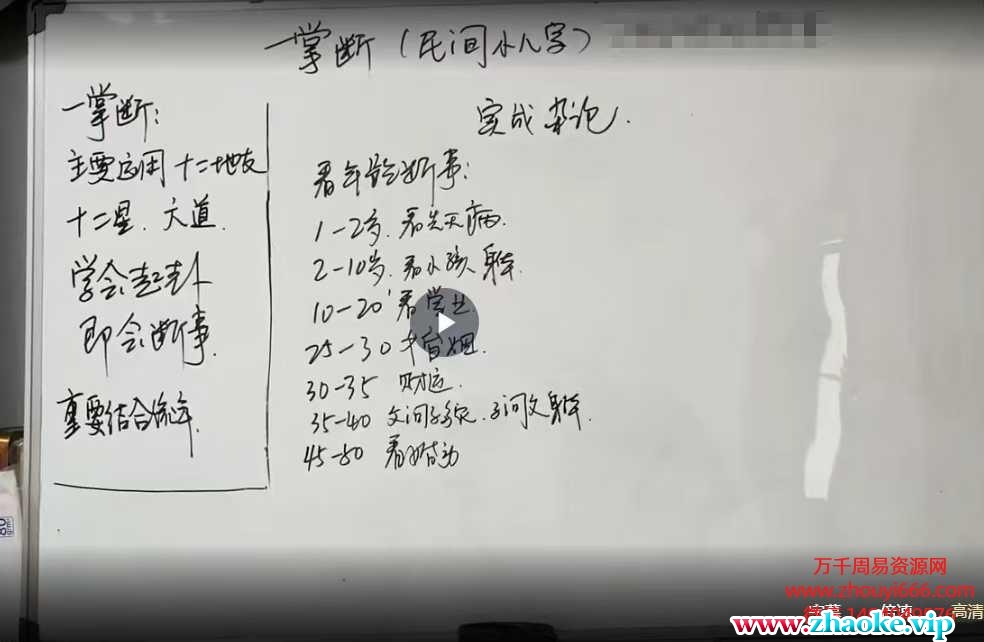 一掌断（民间小八字）
一掌断：
主要应用十二地支
十二星.六道.
学会起卦
即会断事.
重要结合流年.
实战杂论.
看年龄断事：
1-2岁.看先天病.
2-10岁.看小孩身体.
10-20 看学业.
25-30 婚姻.
30-35 财运.
35-40 父问子，子问父身体.
45-50 看婚
万千周易资源网
www.zhouyi666.com
倍速
高清
www.zhaoke.vip